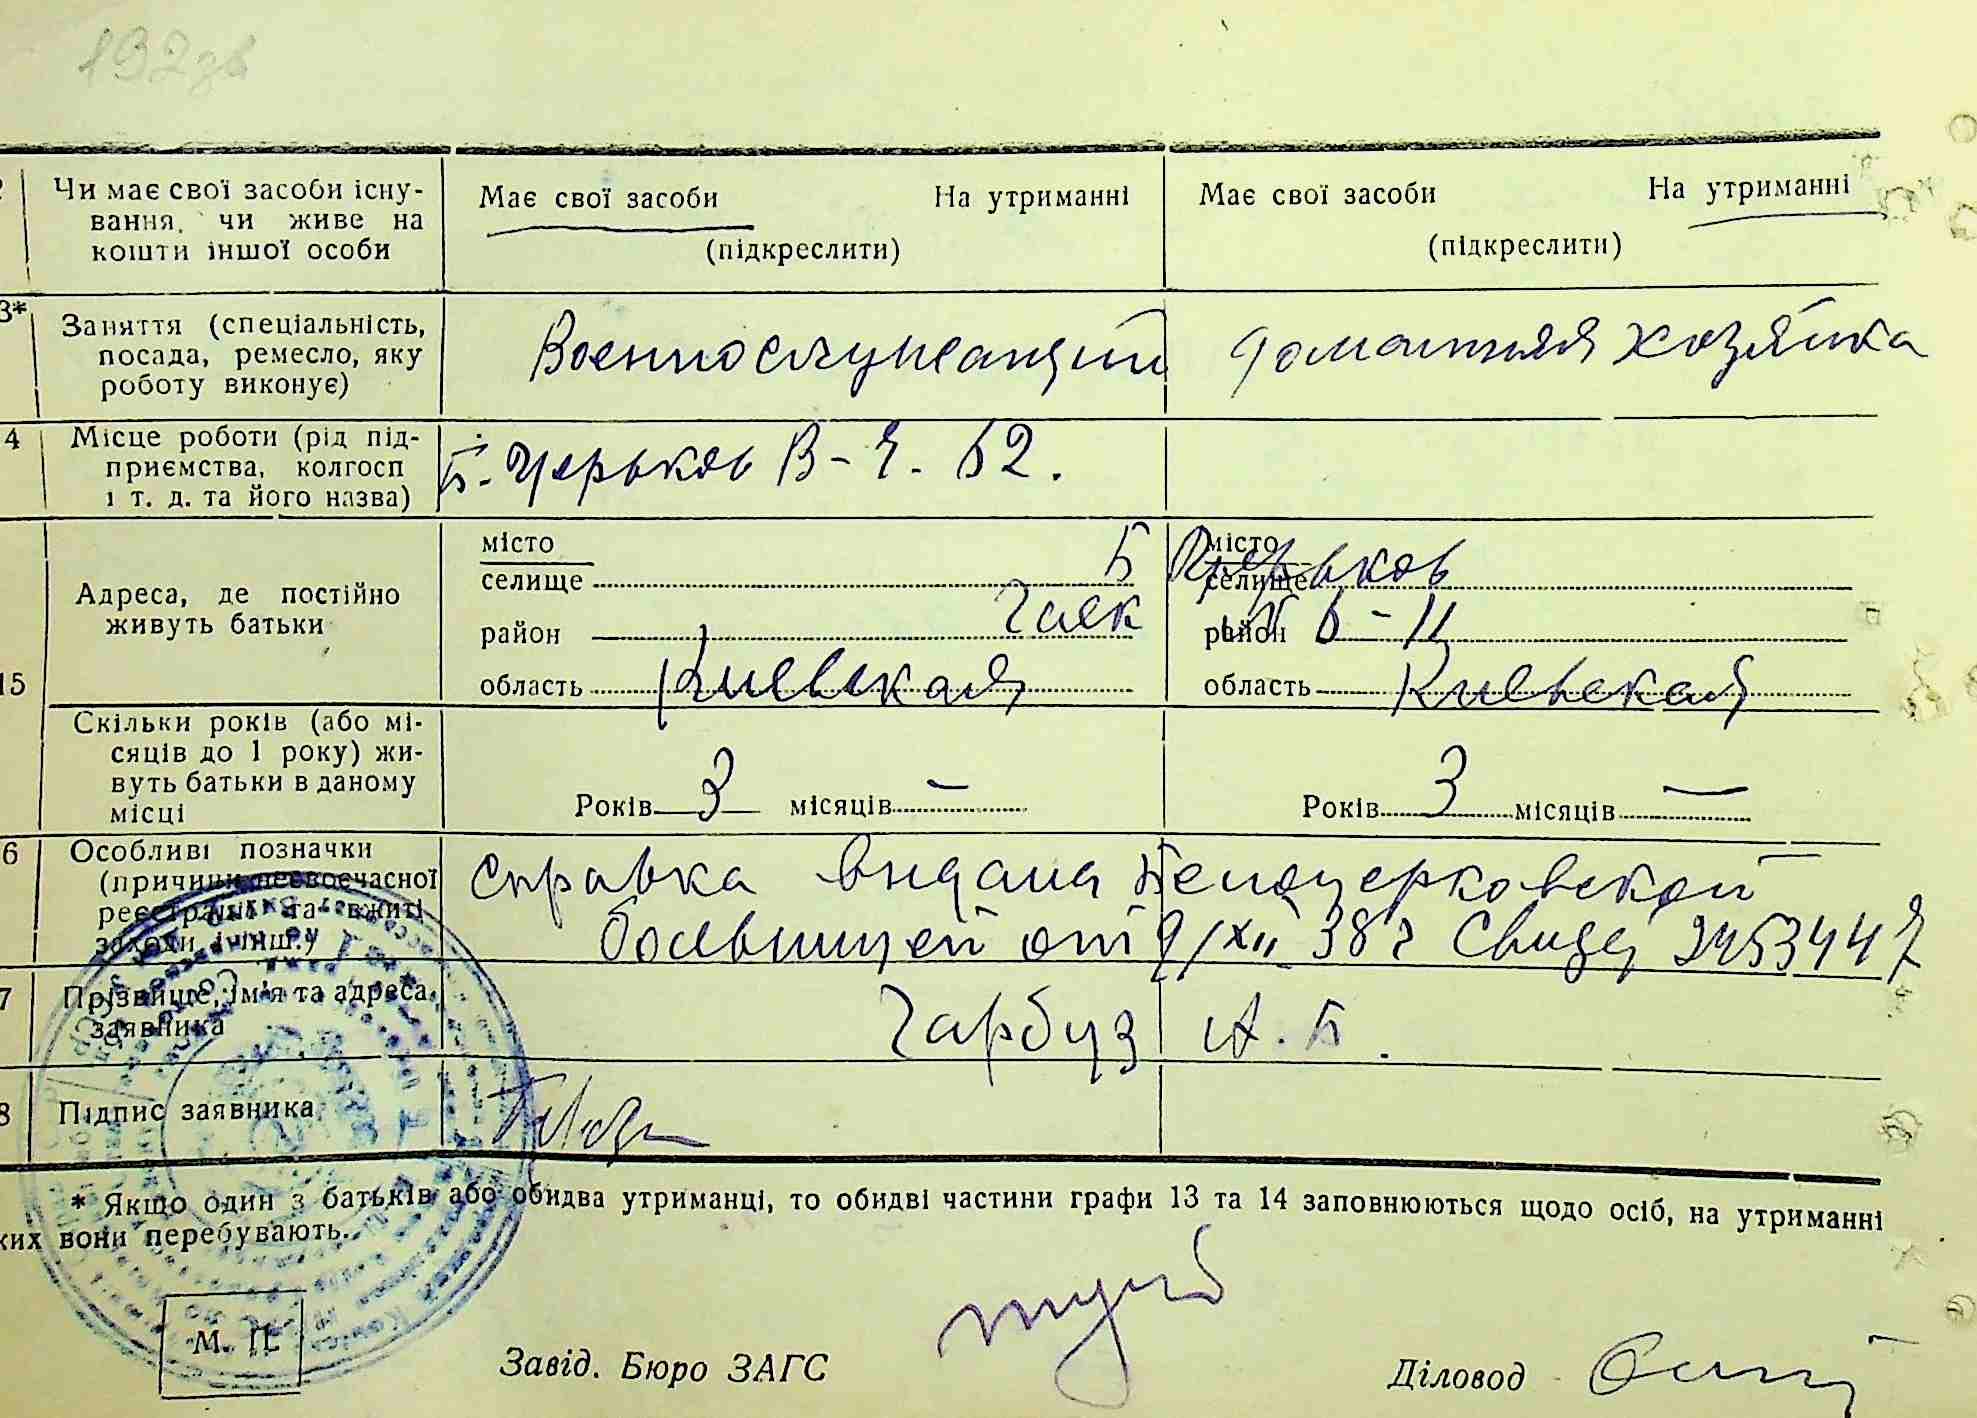 192зв
Чи має свої засоби існу-
вання, чи живе на
кошти іншої особи
Має свої засоби На утриманні
(підкреслити)
Має свої засоби На утриманні
(підкреслити)
3*
Заняття (спеціальність,
посада, ремесло, яку
роботу виконує)
Военнослужащий
домашняя хозяйка
4
Місце роботи (рід під-
приємства, колгосп
і т. д. та його назва)
Б. Церьков В-Ч. 62.
15
Адреса, де постійно
живуть батьки
місто Б Церьков
селище
район Гаек
область Киевская
місто
селище
район
область Киевская
Скільки років (або мі-
сяців до 1 року) жи-
вуть батьки в даному
місці
Років 3 місяців —
Років 3 місяців —
6
Особливі позначки
(причини несвоєчасної
реєстрації та вжиті
заходи і інш.)
Справка выдана Белоцерковской
больницей от 9/XII 38 г Свидет 2453447
7
Прізвище, ім'я та адреса
заявника
Гарбуз А. Б.
8
Підпис заявника
* Якщо один з батьків або обидва утриманці, то обидві частини графи 13 та 14 заповнюються щодо осіб, на утриманні
ких вони перебувають.
М. П.
Завід. Бюро ЗАГС
Діловод